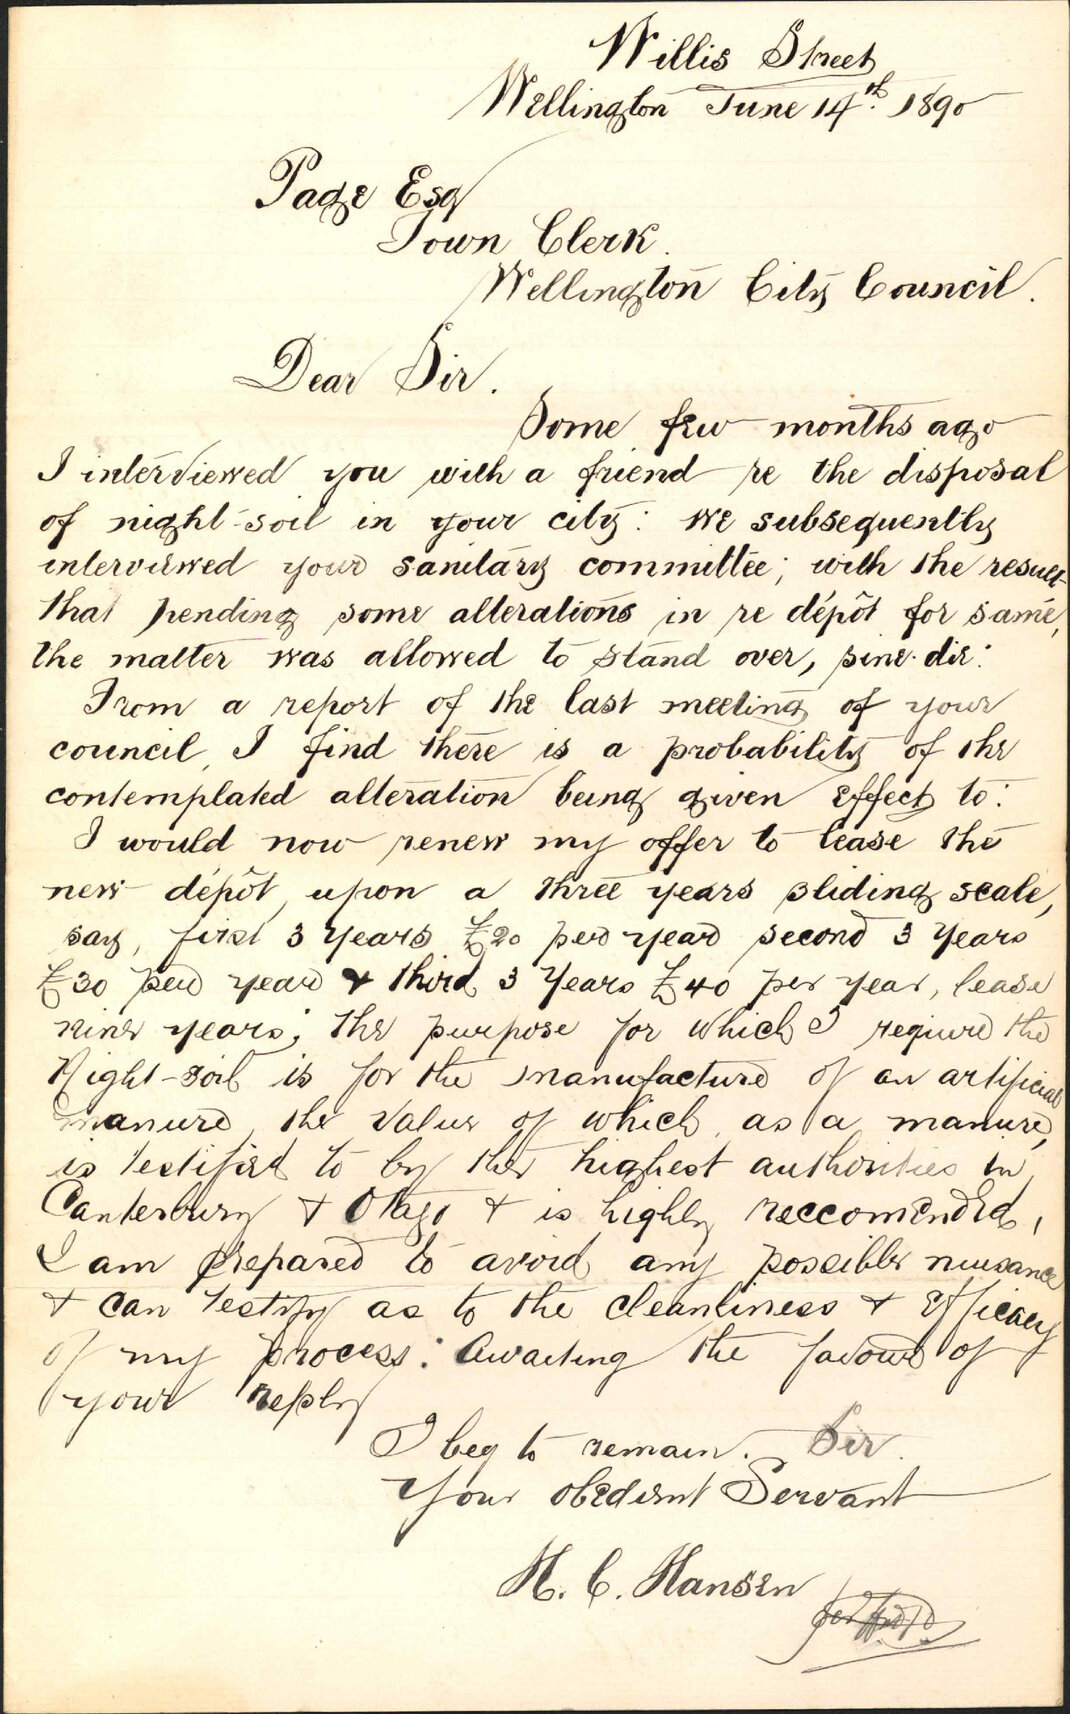 Willis Street
Wellington June 14th. 1890
Page Esq
Town Clerk.
Wellington City Council.
Dear Sir.
Some few months ago
I interviewed you with a friend re the disposal
of night-soil in your city: We subsequently
interviewed your sanitary committee; with the result
that pending some alterations in re dépôt for same,
the matter was allowed to stand over, sine die:
From a report of the last meeting of your
council, I find there is a probability of the
contemplated alteration being given effect to:
I would now renew my offer to lease the
new dépôt, upon a three years sliding scale,
say, first 3 years £20 per year second 3 years
£30 per year & third 3 Years £40 per year, lease
nine years; the purpose for which I require the
Night-soil is for the manufacture of an artificial
manure, the value of which, as a manure,
is testified to by the highest authorities in
Canterbury & Otago & is highly reccomended,
I am prepared to avoid any possible nuisance
& can testify as to the cleanliness & efficacy
of my process: Awaiting the favour of
your reply
I beg to remain. Sir.
Your obedient Servant
H. C. Hansen